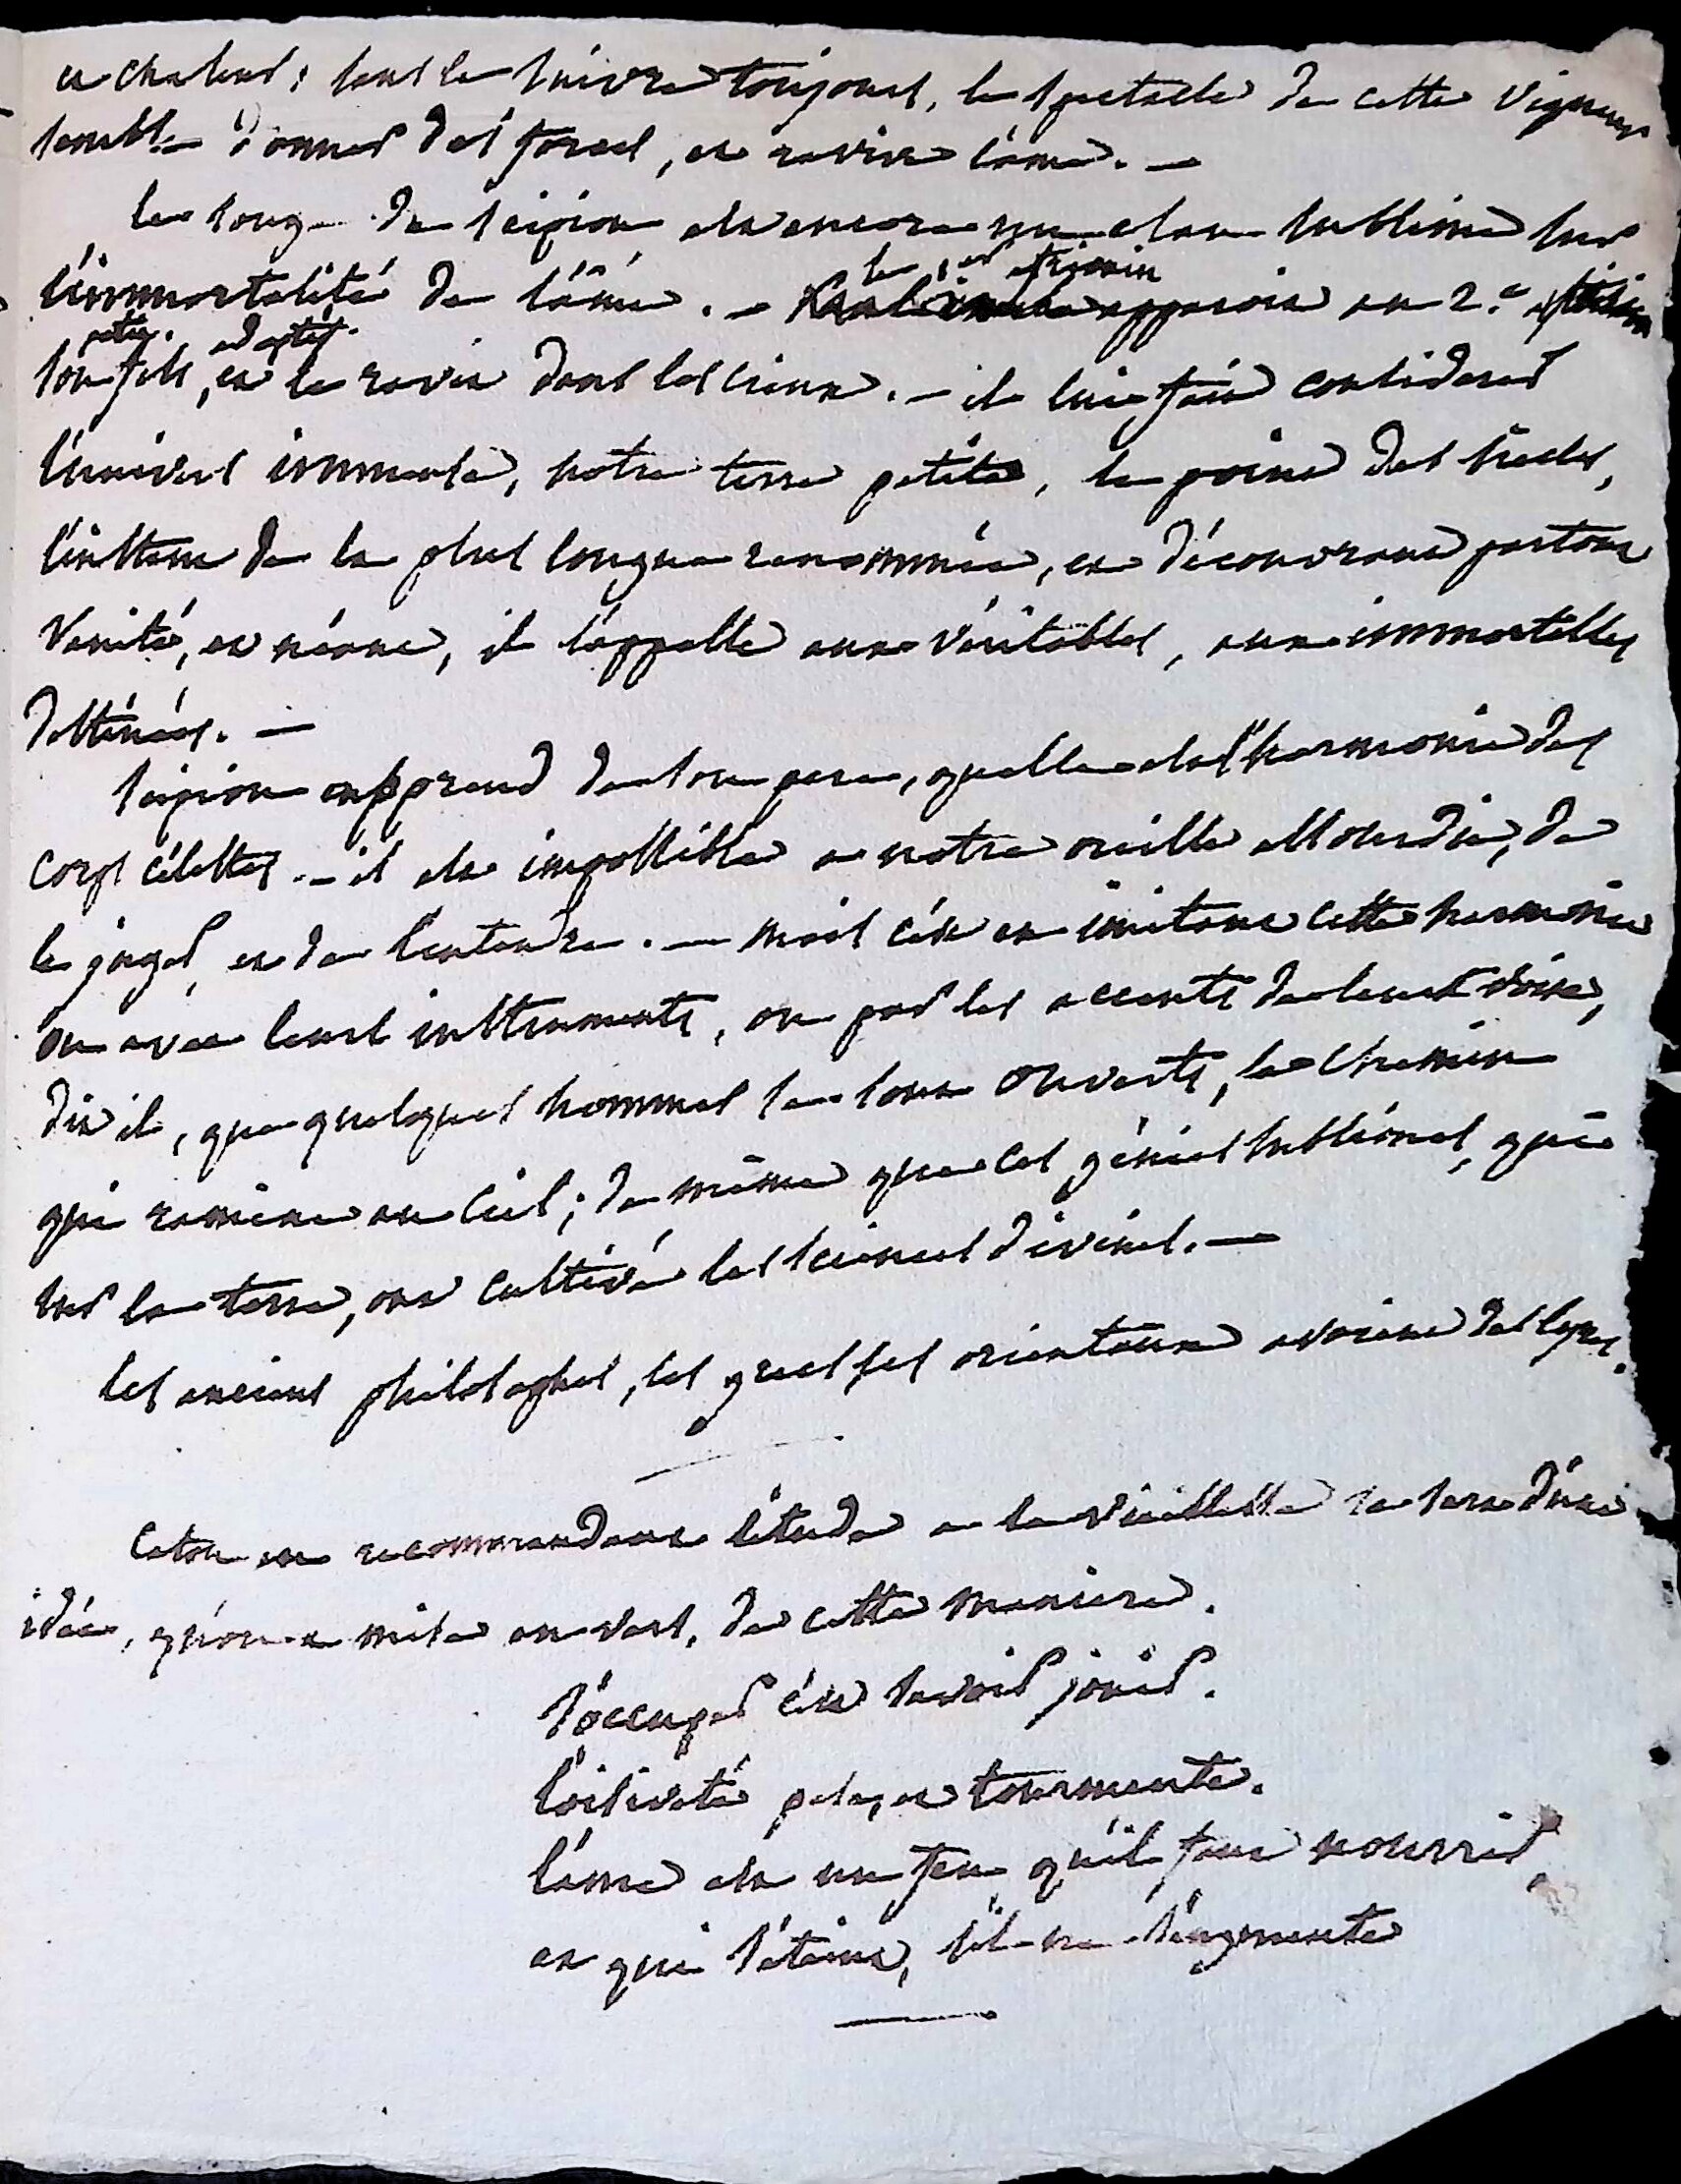 et chaleur ; sans le suivre toujours, le spectacle de cette vigueur
semble donner des forces, et ravive l'ame. —
le songe de scipion est encore un elan sublime sur
l'immortalité de l'âme. — le 1er africain apparoit au 2e africain
son petit fils adoptif, et le ravit dans les cieux. — il lui fait considerer
l'univers immense, notre terre petite, le point des siecles,
l'instant de la plus longue renommée, et découvrant partout
vanité, et néant, il l'appelle aux véritables, aux immortelles
destinées. —
scipion apprend de son pere, quelle est l'harmonie des
corps célestes. — il est impossible a notre oreille assourdie, de
le juger, et de l'entendre. — mais c'est en imitant cette harmonie
ou avec leurs instruments, ou par les accents de leurs voix,
dit il, que quelques hommes se sont ouverts, le chemin
qui ramene au ciel ; de même que ces génies sublimes, qui
sur la terre, ont cultivé les sciences divines. —
les anciens philosophes, les grecs les orientaux avoient des
Caton en recommandant l'étude a la vieillesse se sert d'une
idée, qu'on a mise en vers, de cette maniere.
s'occuper c'est savoir jouir.
l'oisiveté pese, et tourmente.
l'ame est un feu qu'il faut nourrir,
et qui s'éteint, s'il ne s'augmente